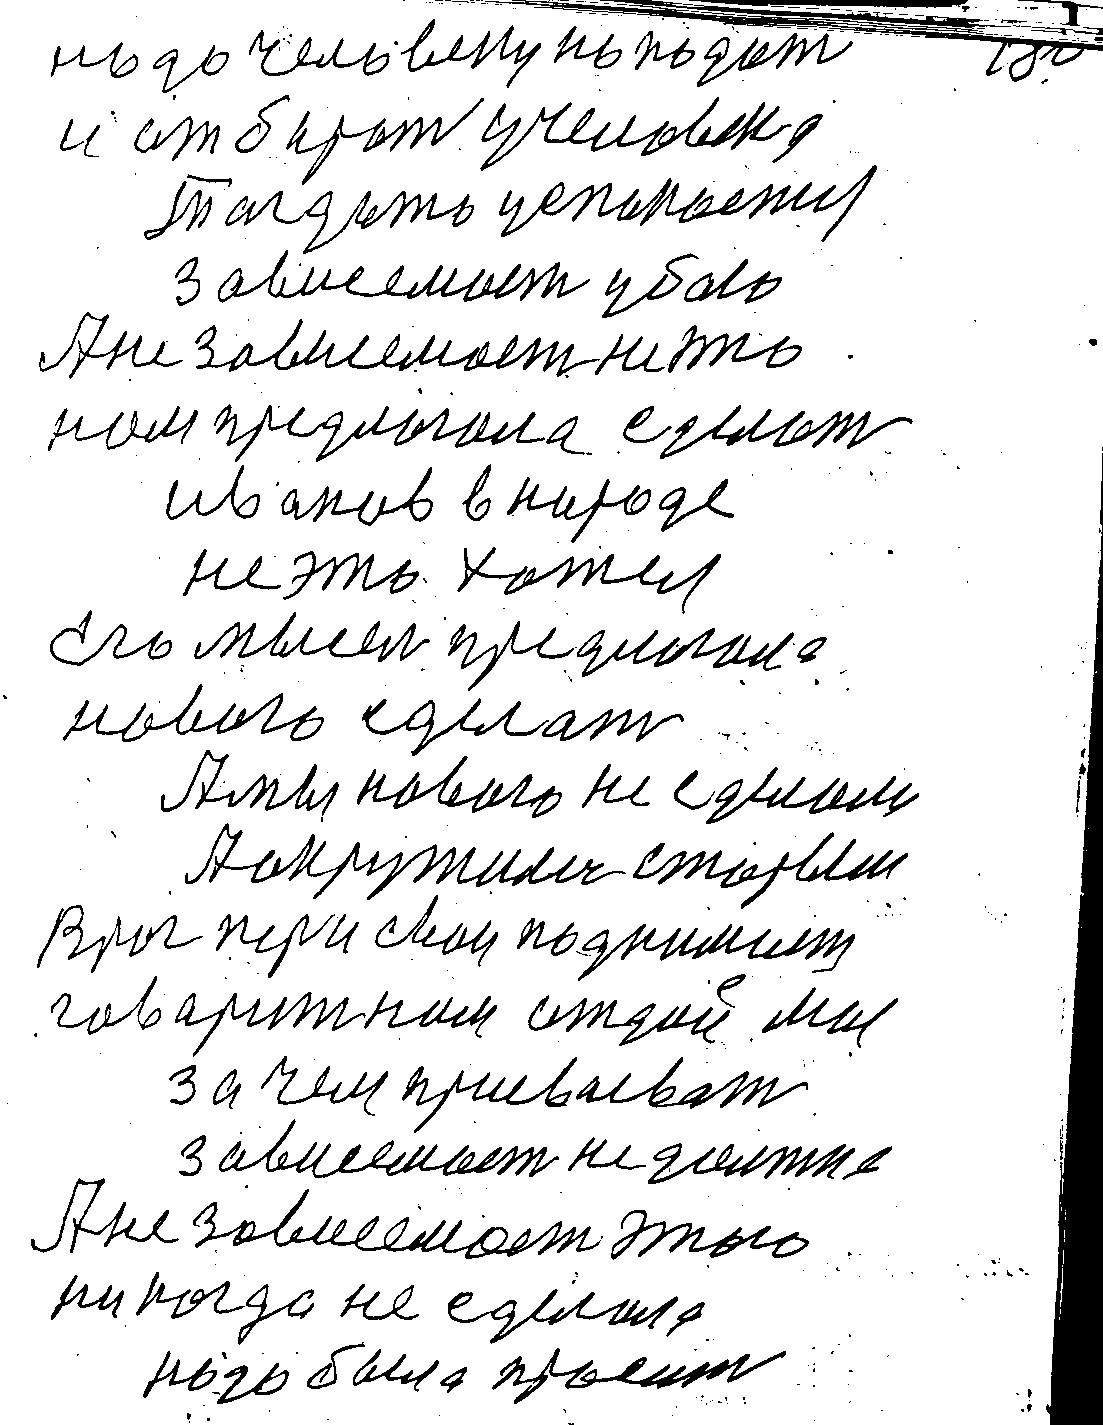 надо человеку попадат
и отбират у человека
Тагдато успокоетил
зависемост убою
А не зависемост не это
нам предлогола сделат
Иванов в народе
не это хотел
Его мысел предлогола
нового сделат
А мы нового не сделали
А окружились старым
Враг пери свои поднимает
говарит нам отдай мая
зачем присваеват
зависемост не должна
А не зависемост этого
никогда не сделала
надо была просит